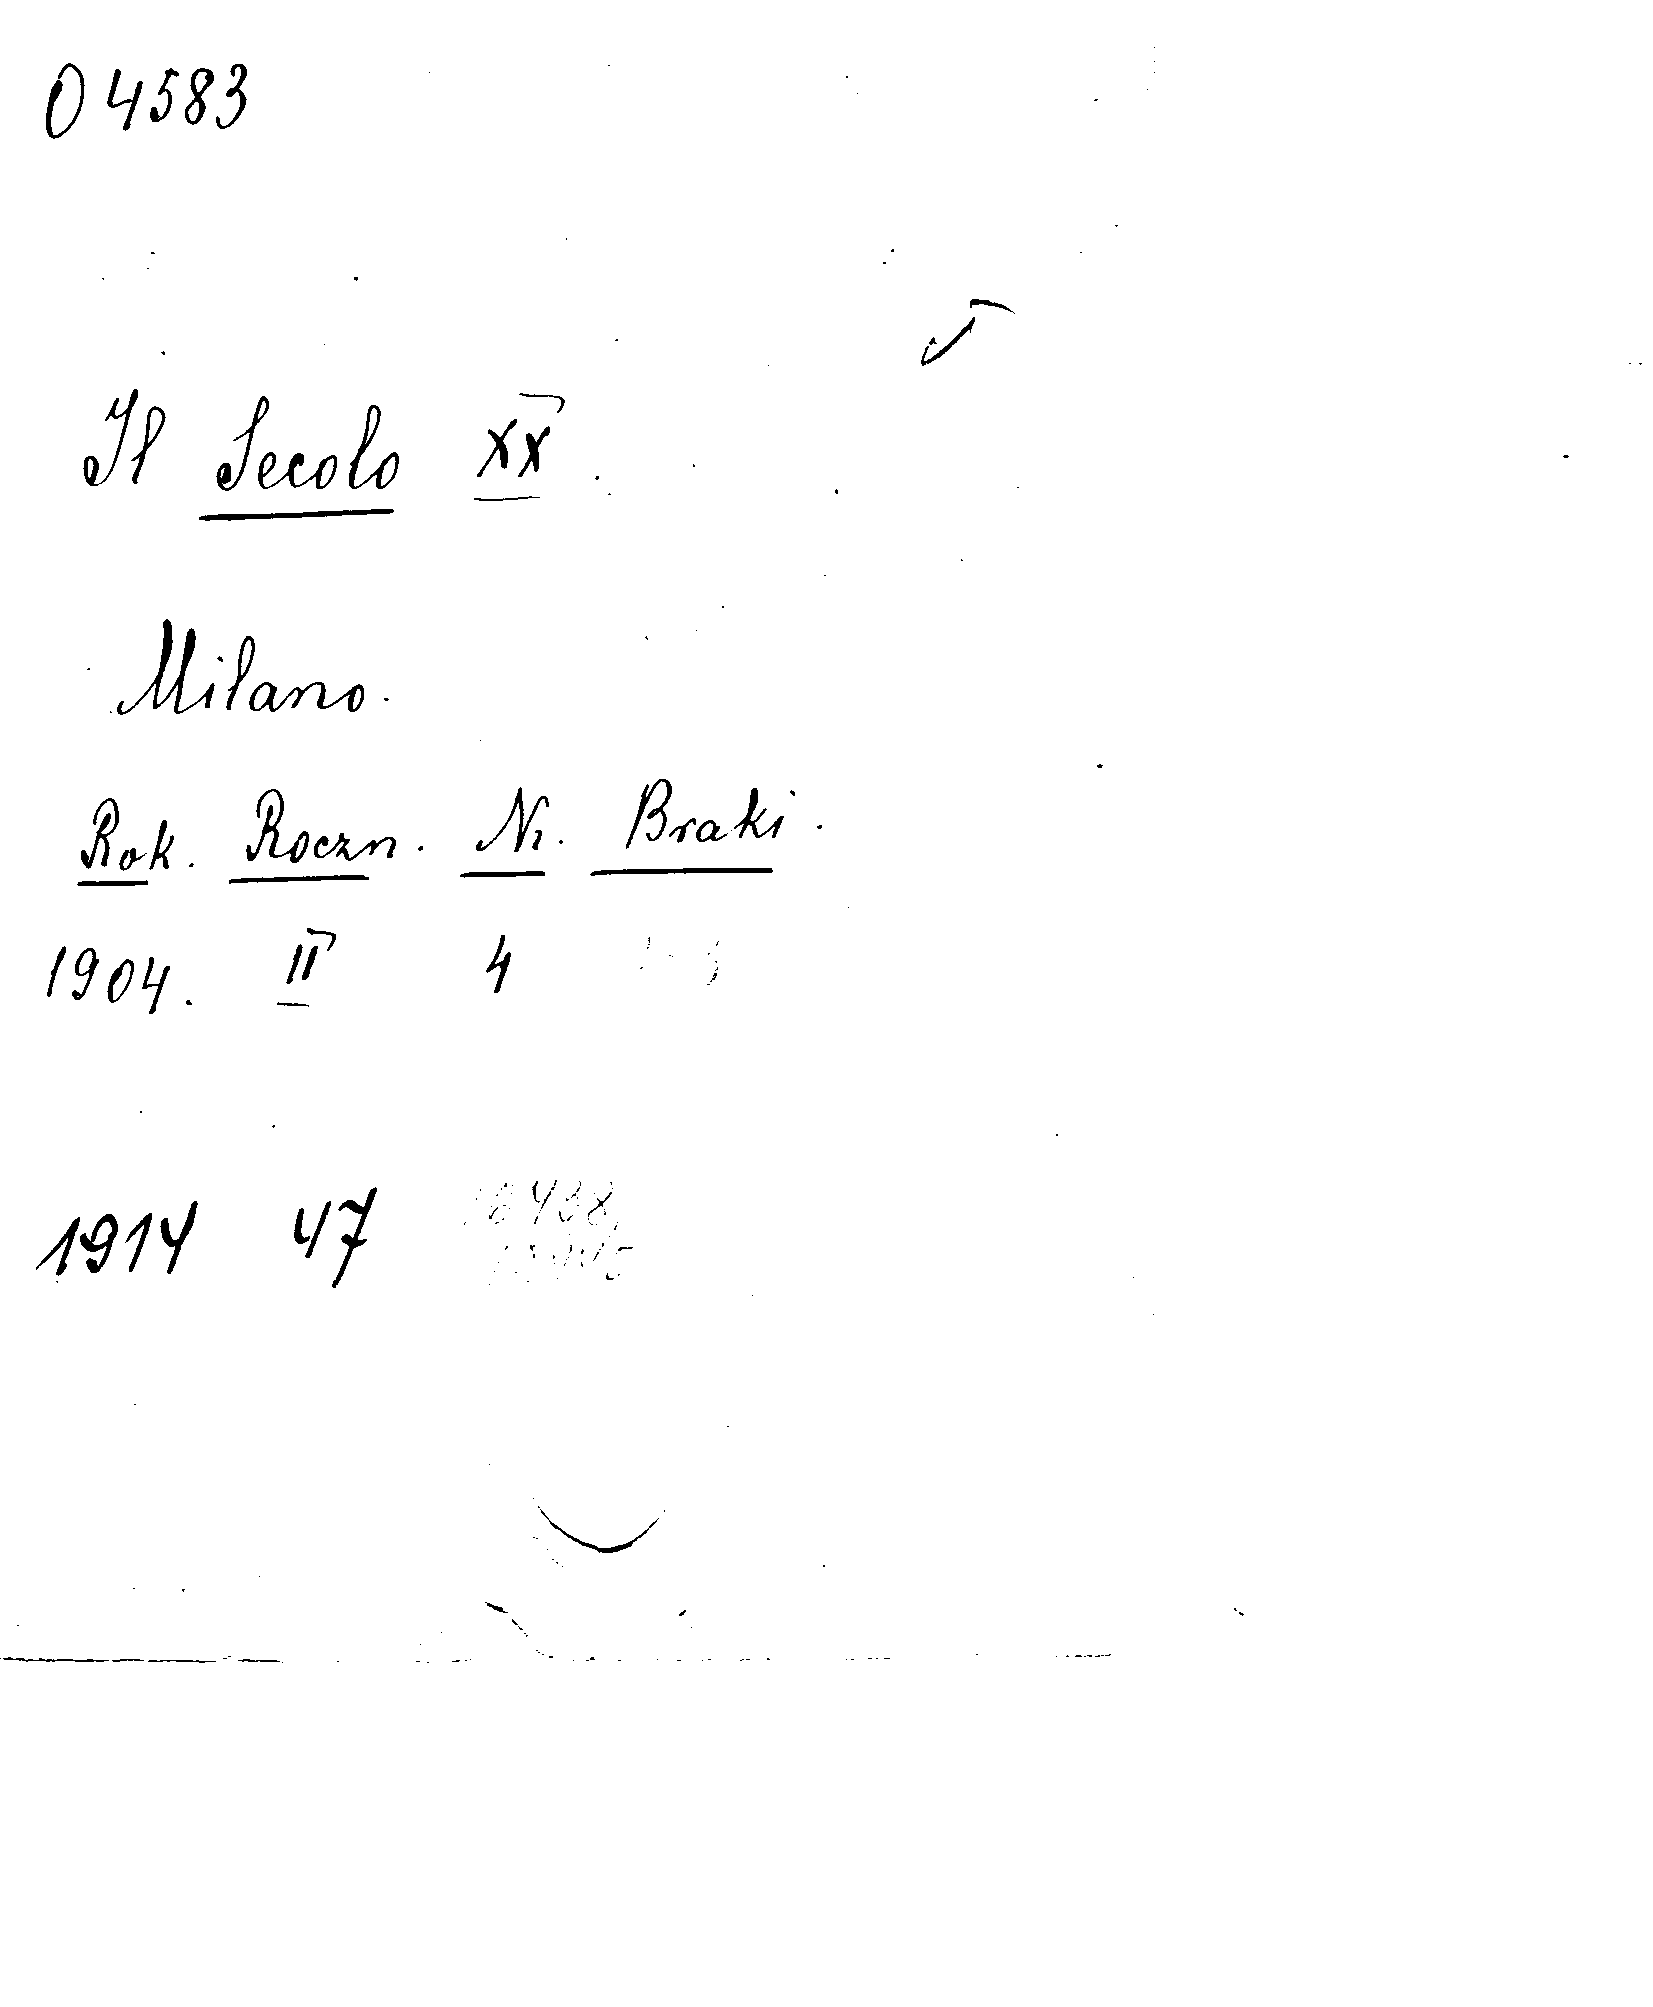 O 4583
Il Secolo XX.
Milano.
Rok. Roczn. Nr. Braki.
1904. II 4
1914 47